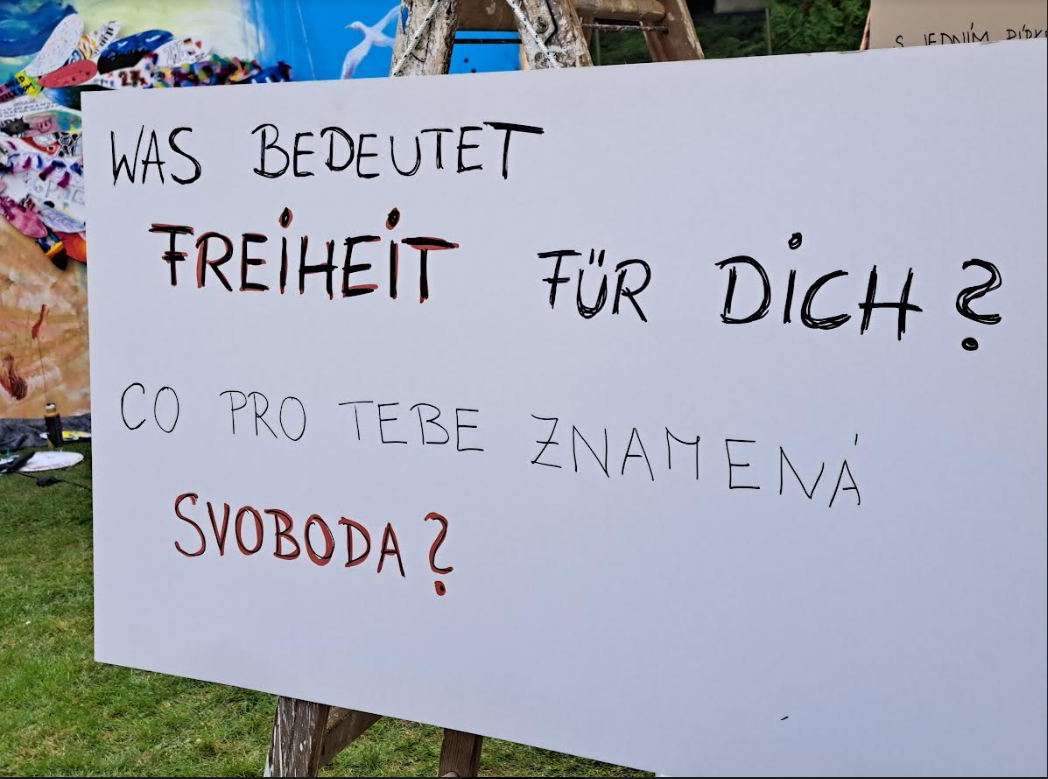 S JEDNÍM
WAS BEDEUTET
FREIHEIT FÜR DICH?
CO PRO TEBE ZNAMENÁ
SVOBODA?